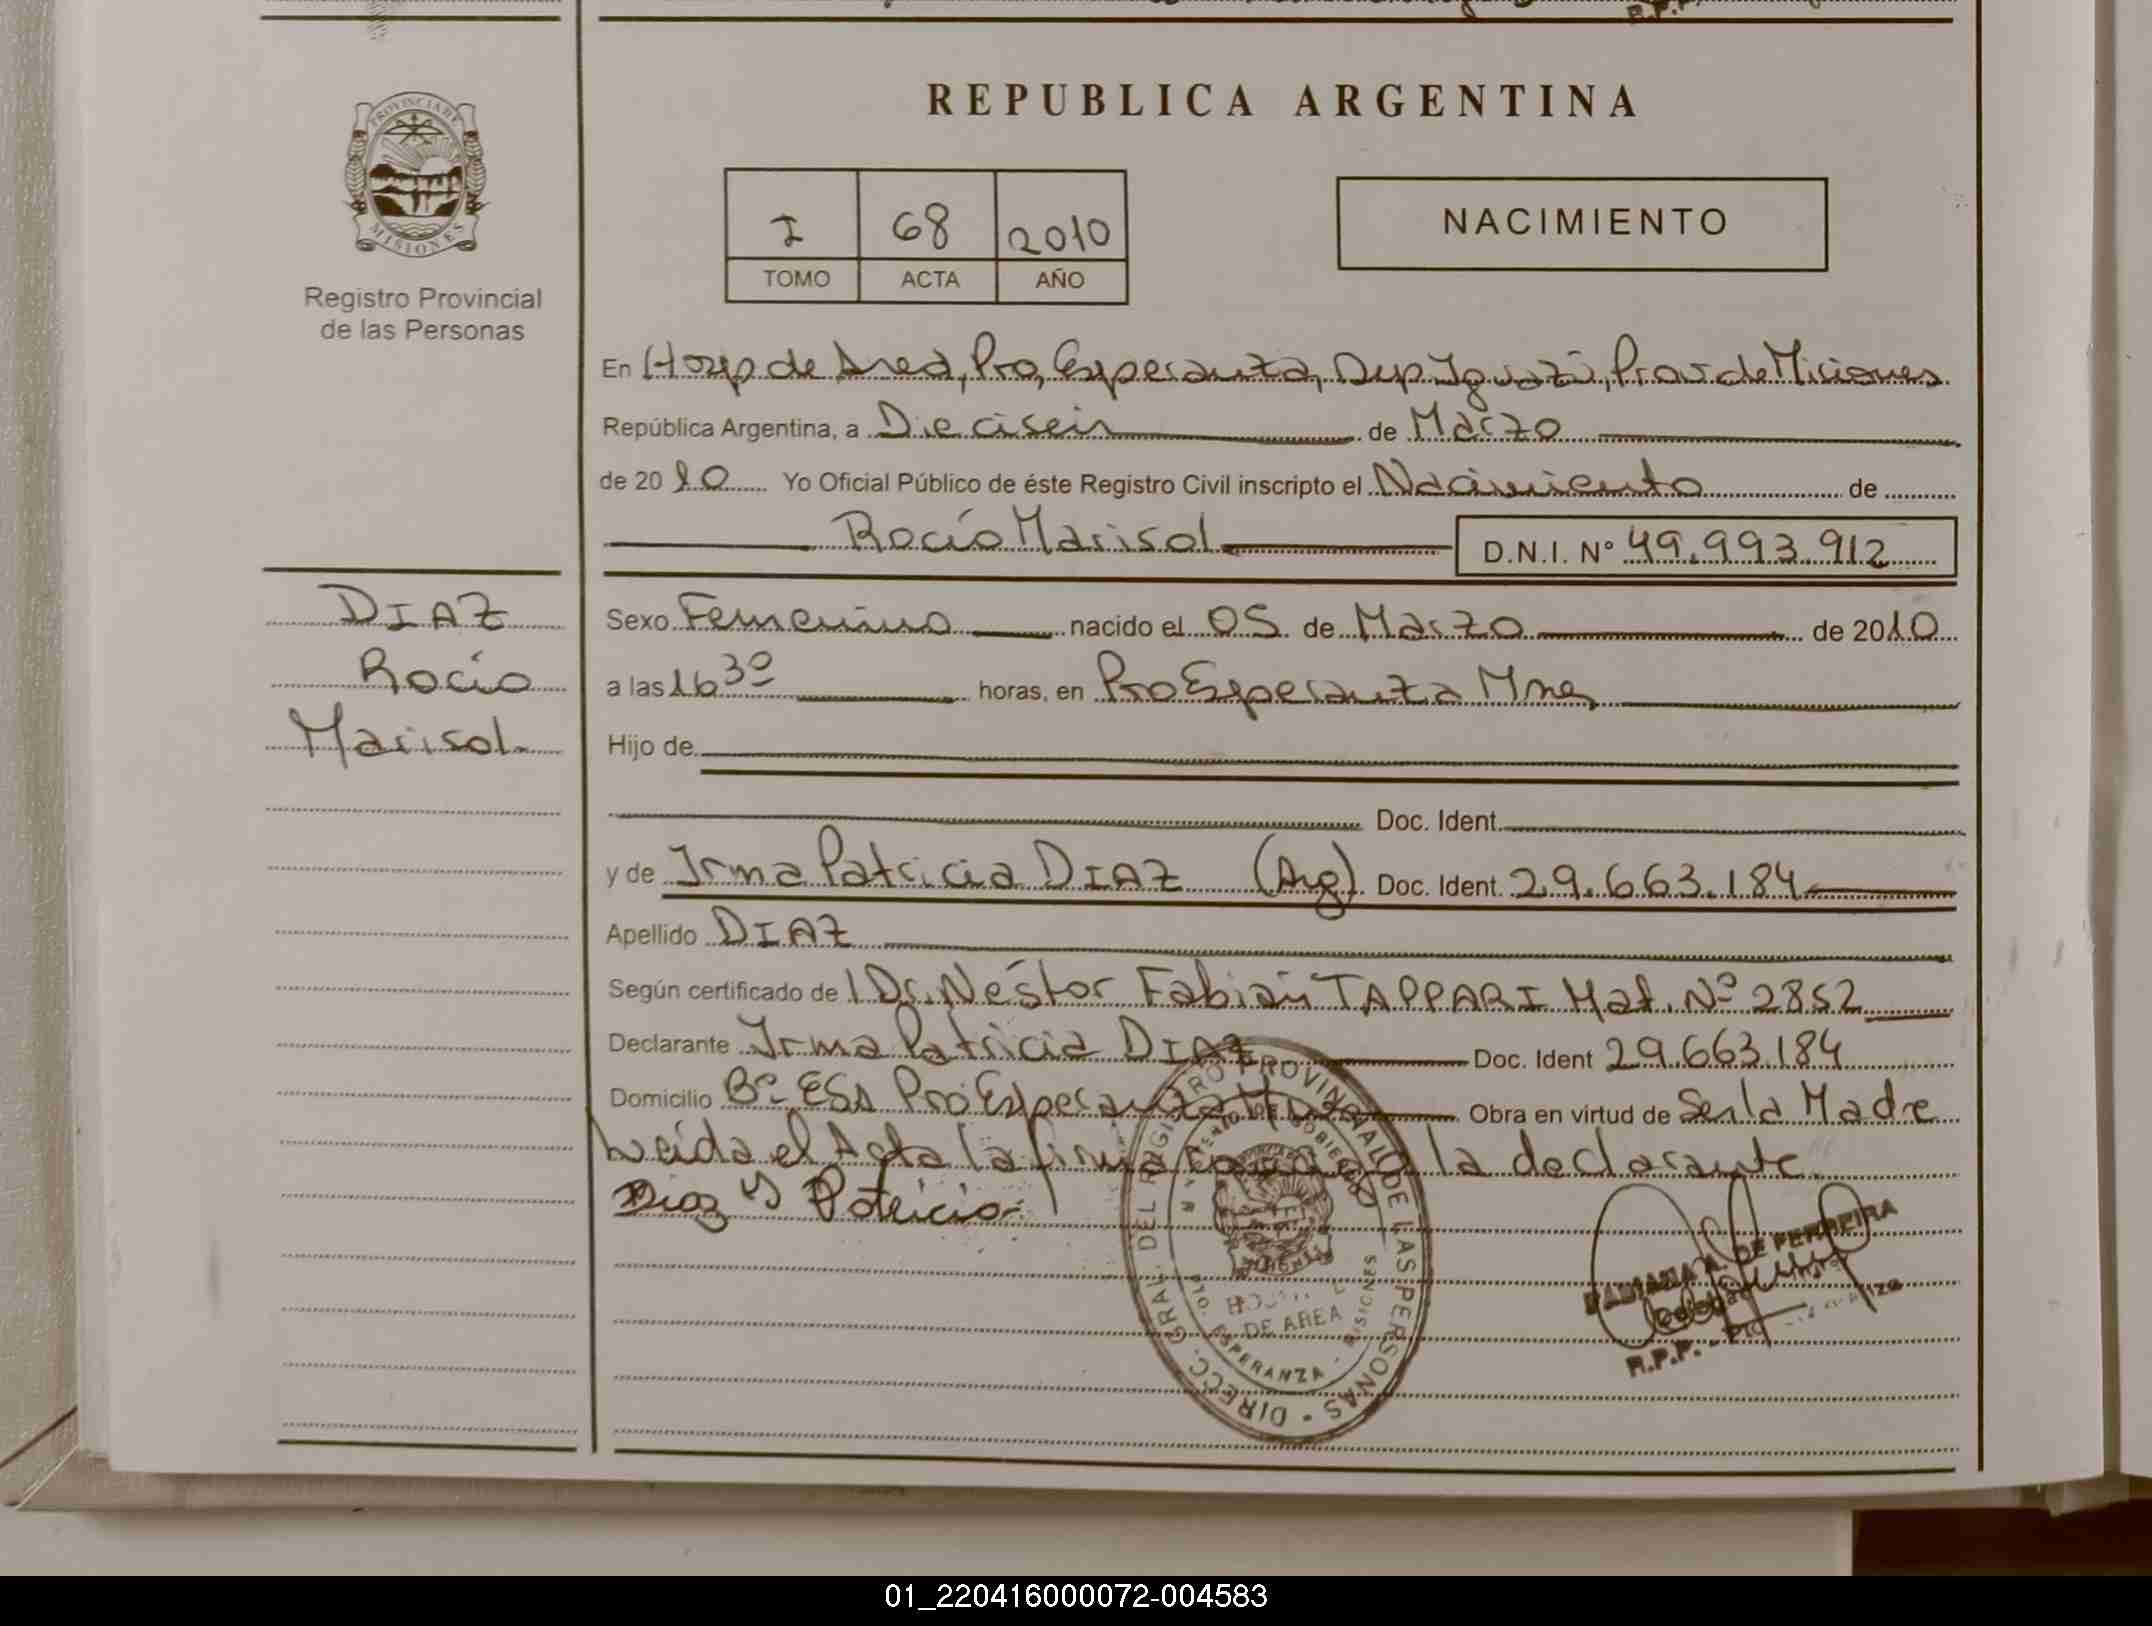 REPUBLICA ARGENTINA
PROVINCIA DE
MISIONES
Registro Provincial
de las Personas
I 68 2010
TOMO ACTA AÑO
NACIMIENTO
En Hosp de Area, Pto, Esperanza, Dep Iguazú, Prov de Misiones
República Argentina, a Dieciseis de Marzo
de 2010 Yo Oficial Público de éste Registro Civil inscripto el Nacimiento de
Rocío Marisol D.N.I. Nº 49.993.912
DIAZ
Rocío
Marisol
Sexo Femenino nacido el 05 de Marzo de 2010
a las 16 30 horas, en Pto Esperanza Mnes
Hijo de
Doc. Ident.
y de Irma Patricia DIAZ (Arg) Doc. Ident. 29.663.184
Apellido DIAZ
Según certificado de l Dr. Néstor Fabián TAPPARI Mat. Nº 2852
Declarante Irma Patricia DIAZ Doc. Ident 29.663.184
Domicilio Bº ESA Pto Esperanza Obra en virtud de Ser la Madre
Leida el Acta la firma la declarante
Diaz Y Patricia
DIRECC. GRAL. DEL REGISTRO PROVINCIAL DE LAS PERSONAS
DE AREA
ESPERANZA - MISIONES
DE FERREIRA
R.P.P.
01_220416000072-004583